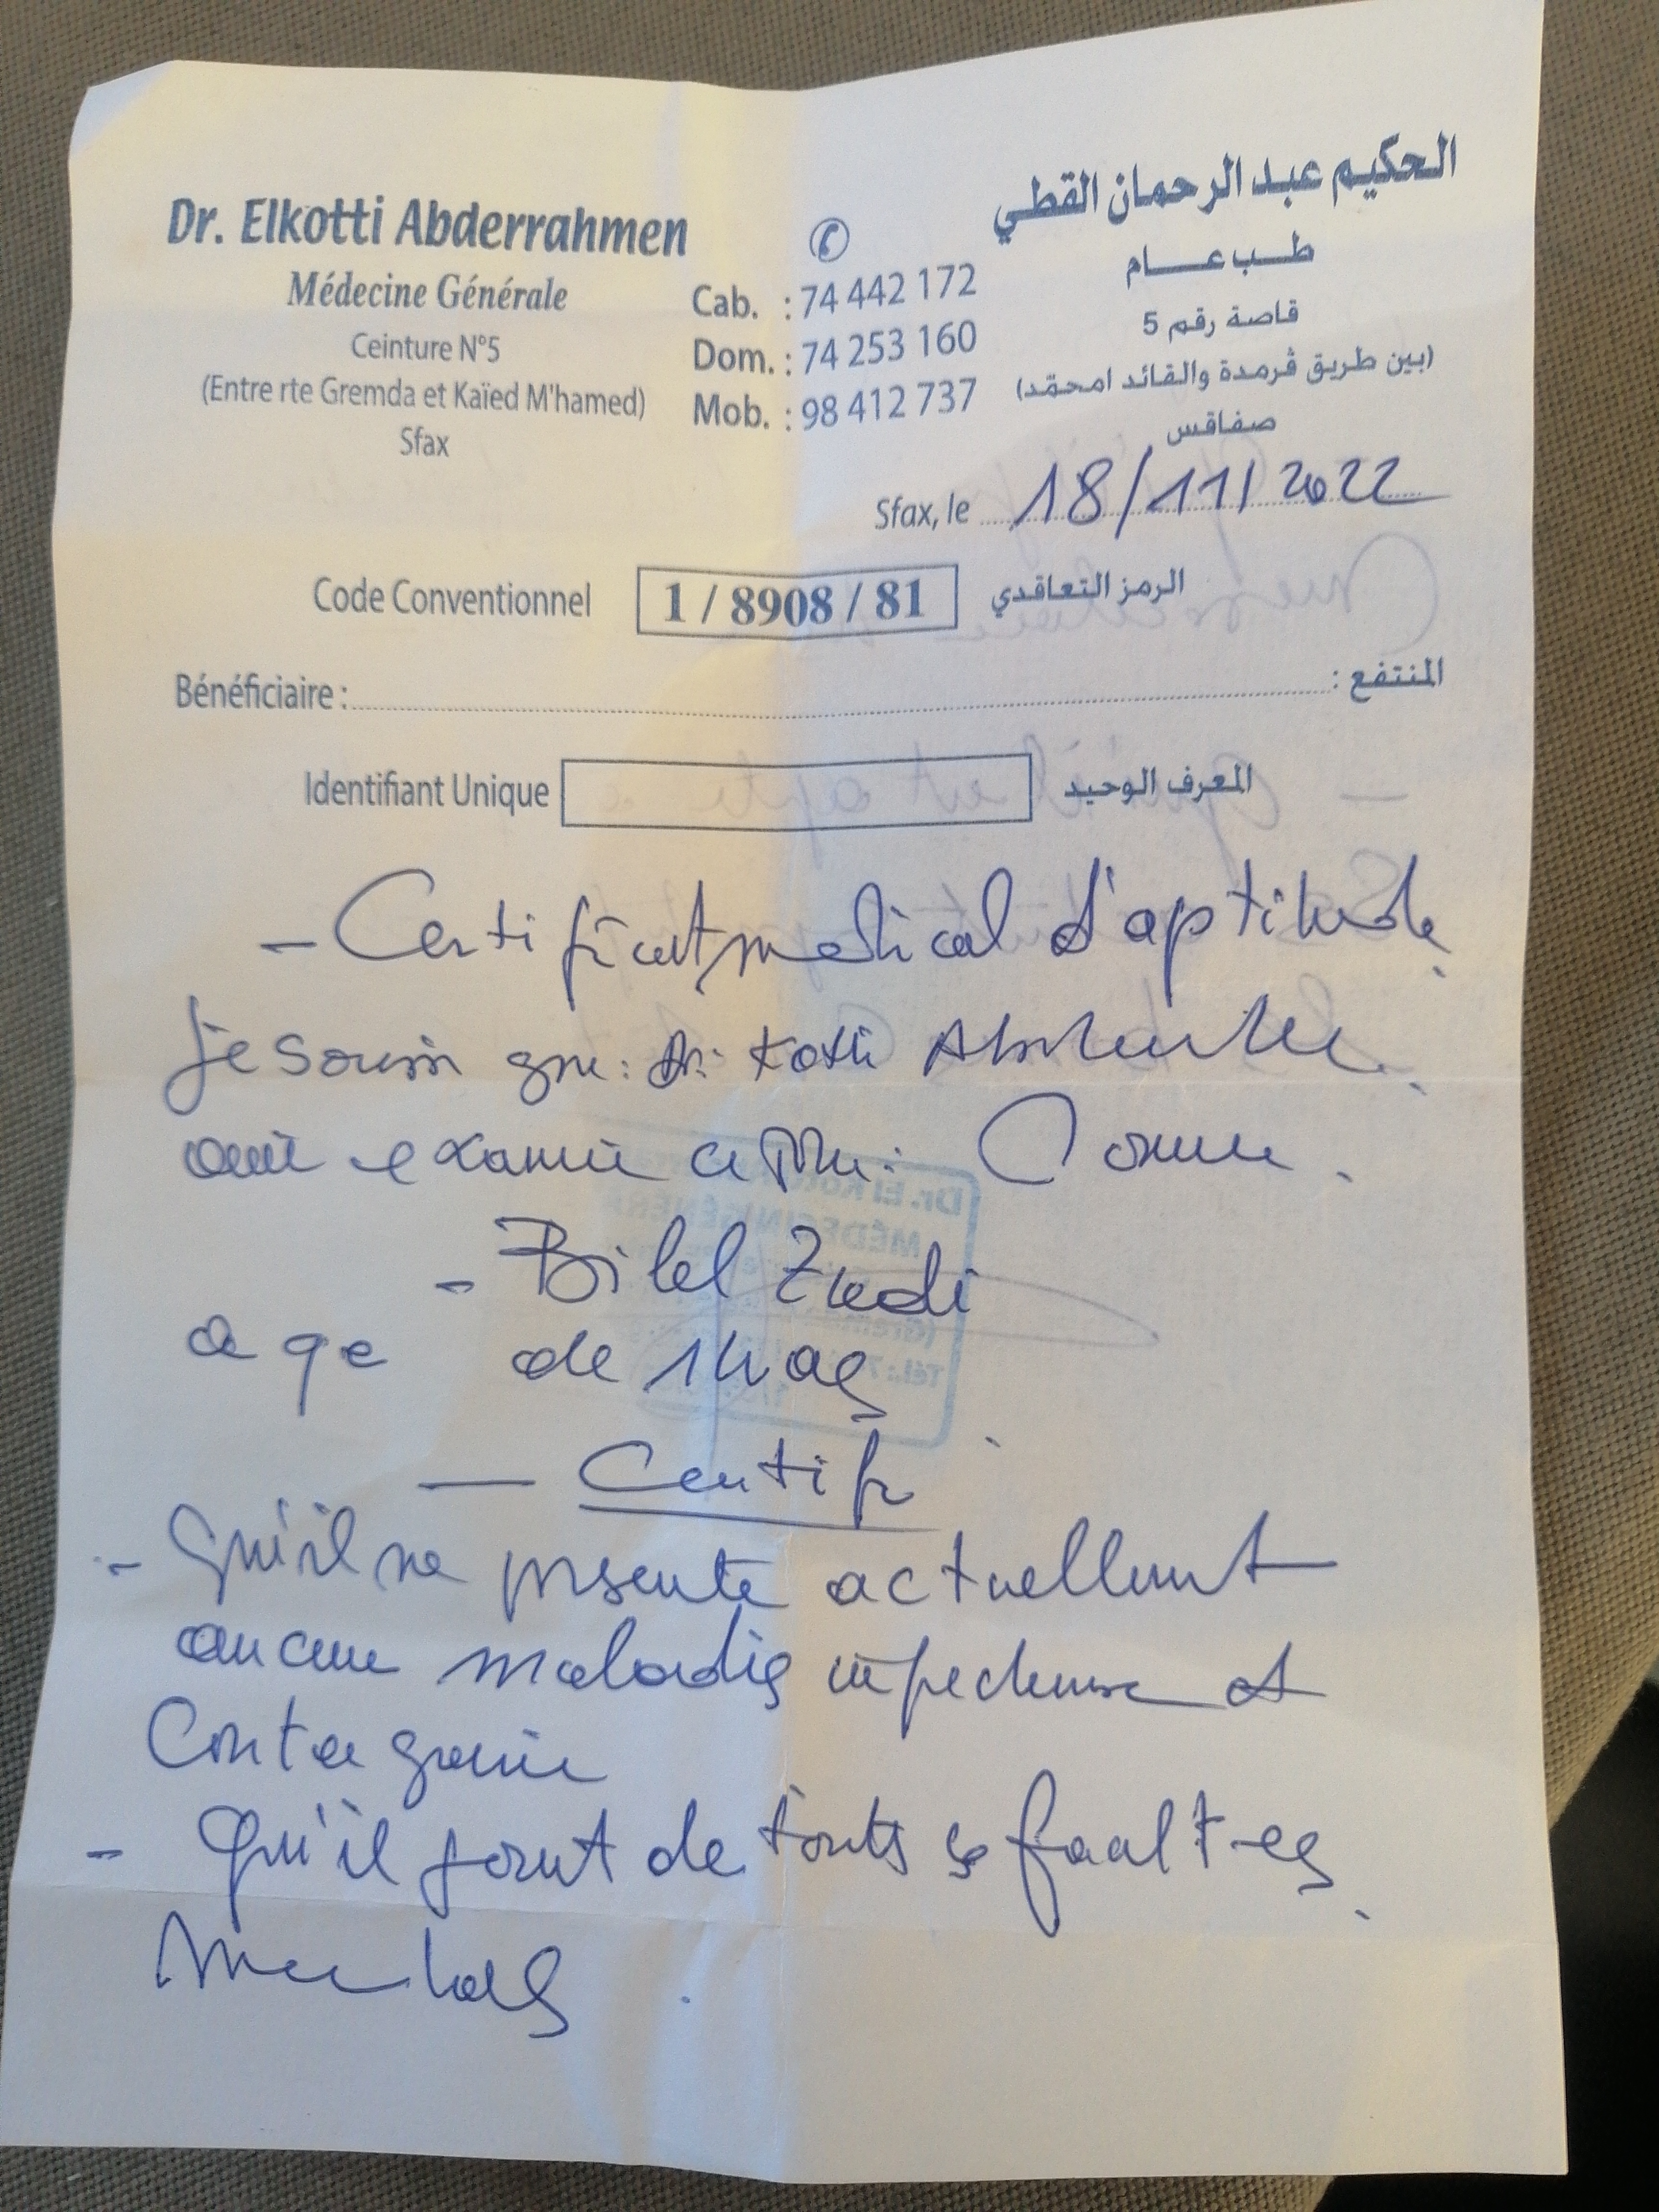 Dr. Elkotti Abderrahmen
Médecine Générale
Ceinture N°5
(Entre rte Gremda et Kaïed M'hamed)
Sfax
Cab. : 74 442 172
Dom. : 74 253 160
Mob. : 98 412 737
الحكيم عبد الرحمان القطي
طب عام
قاصة رقم 5
(بين طريق ڤرمدة والقائد امحمّد)
صفاقس
Sfax, le 18/11/2022
Code Conventionnel 1 / 8908 / 81 الرمز التعاقدي
Bénéficiaire : المنتفع :
Identifiant Unique المعرف الوحيد
- Certificat medical d'aptitude
Je soussigne: Dr: Kotti
examiné ce
- Bilel
age de
- Certifie
- Qu'il ne presente actuellement
aucune maladie et
Contagieuse
- Qu'il jouit de toutes ses facultes
Mentales.